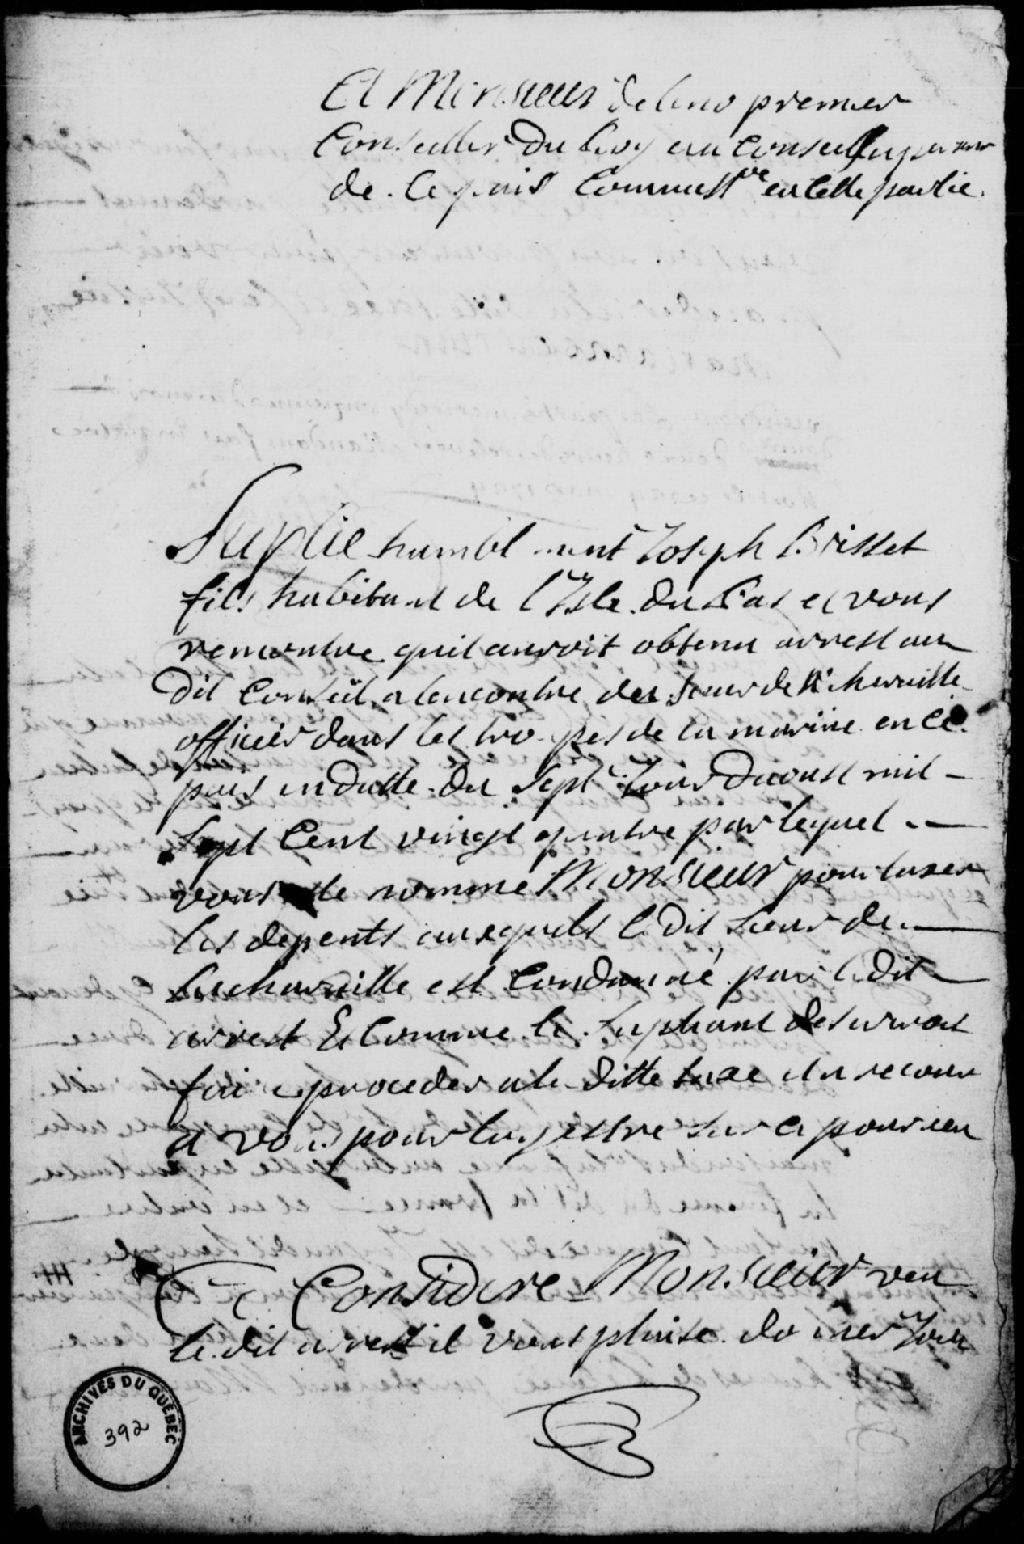 A Monsieur de lino premier
Conseiller du Roy au Conseil superieur
de ce païs Commiss.re en cette partie.
Suplie humblement Joseph Brisset
fils habitant de l'Isle du Pas et vous
remontre quil auroit obtenu arrest au
dit Conseil alencontre du Sieur de
officier dans les troupes de la marine en ce
païs en datte du Sept Jour Daoust mil
Sept Cent vingt quatre par lequel
vous nomme Monsieur pour taxer
les depents auxquels ledit Sieur de
est Condamné par ledit
arrest Et Comme le Supliant desireroit
faire proceder a la ditte taxe il a recours
a vous pour luy estre sur ce pourveu
Ce Consideré Monsieur veu
ledit arrest il vous plaise donner Jour
ARCHIVES DU QUÉBEC
392